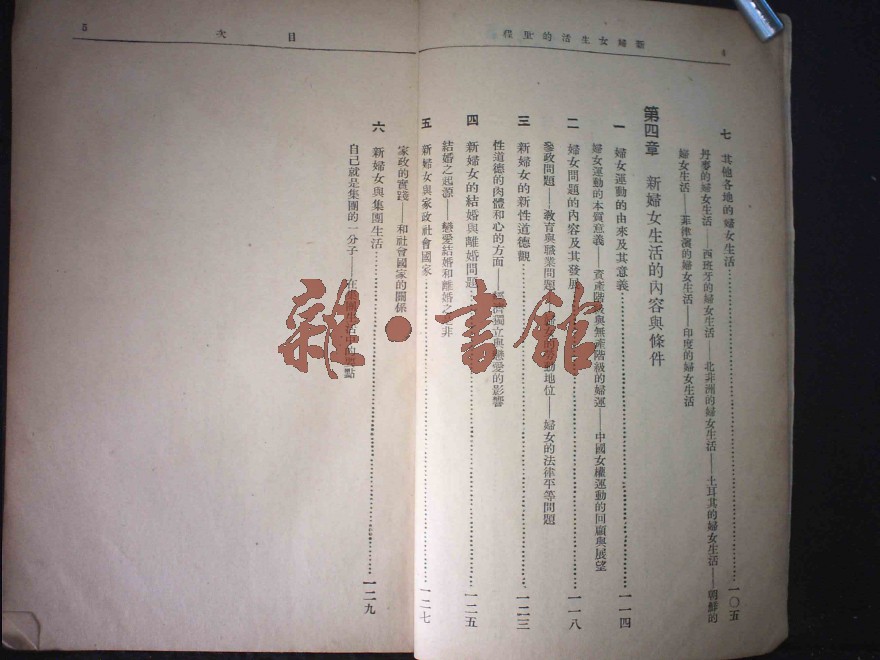 4
新婦女生活的里程
七 其他各地的婦女生活……一〇五
丹麥的婦女生活——西班牙的婦女生活——北非洲的婦女生活——土耳其的婦女生活——朝鮮的
婦女生活——菲律濱的婦女生活——印度的婦女生活
第四章 新婦女生活的內容與條件
一 婦女運動的由來及其意義……一一四
婦女運動的本質意義——資產階級與無產階級的婦運——中國女權運動的回顧與展望
二 婦女問題的內容及其發展……一一八
參政問題——教育與職業問題 動地位——婦女的法律平等問題
三 新婦女的新性道德觀……一二三
性道德的肉體和心的方面——經濟獨立與戀愛的影響
四 新婦女的結婚與離婚問題……一二五
結婚之起源——戀愛結婚和離婚之 非
五 新婦女與家政社會國家……一二七
家政的實踐——和社會國家的關係
目次
5
六 新婦女與集團生活……一二九
自己就是集團的一分子——在 活中的 點
雜·書館